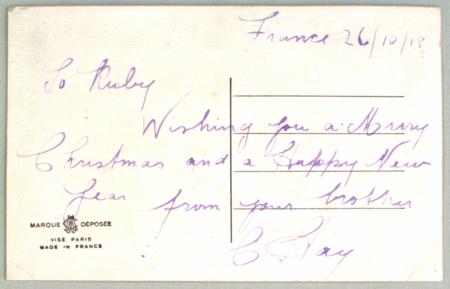 France 26/10/18
To Ruby
Wishing you a Merry
Christmas and a Happy New
Year from your brother
C Hay
MARQUE DÉPOSÉE
VISÉ PARIS
MADE IN FRANCE